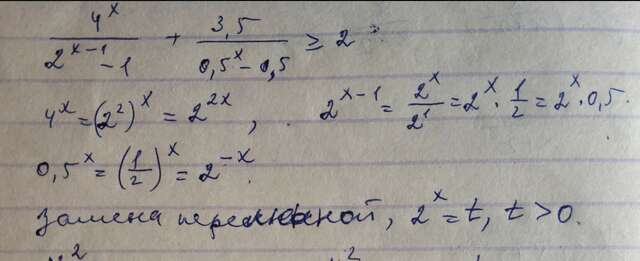 4^x / (2^(x-1) - 1) + 3,5 / (0,5^x - 0,5) ≥ 2
4^x = (2^2)^x = 2^(2x), 2^(x-1) = 2^x / 2^1 = 2^x · 1/2 = 2^x · 0,5.
0,5^x = (1/2)^x = 2^(-x).
Замена переменной, 2^x = t, t > 0.